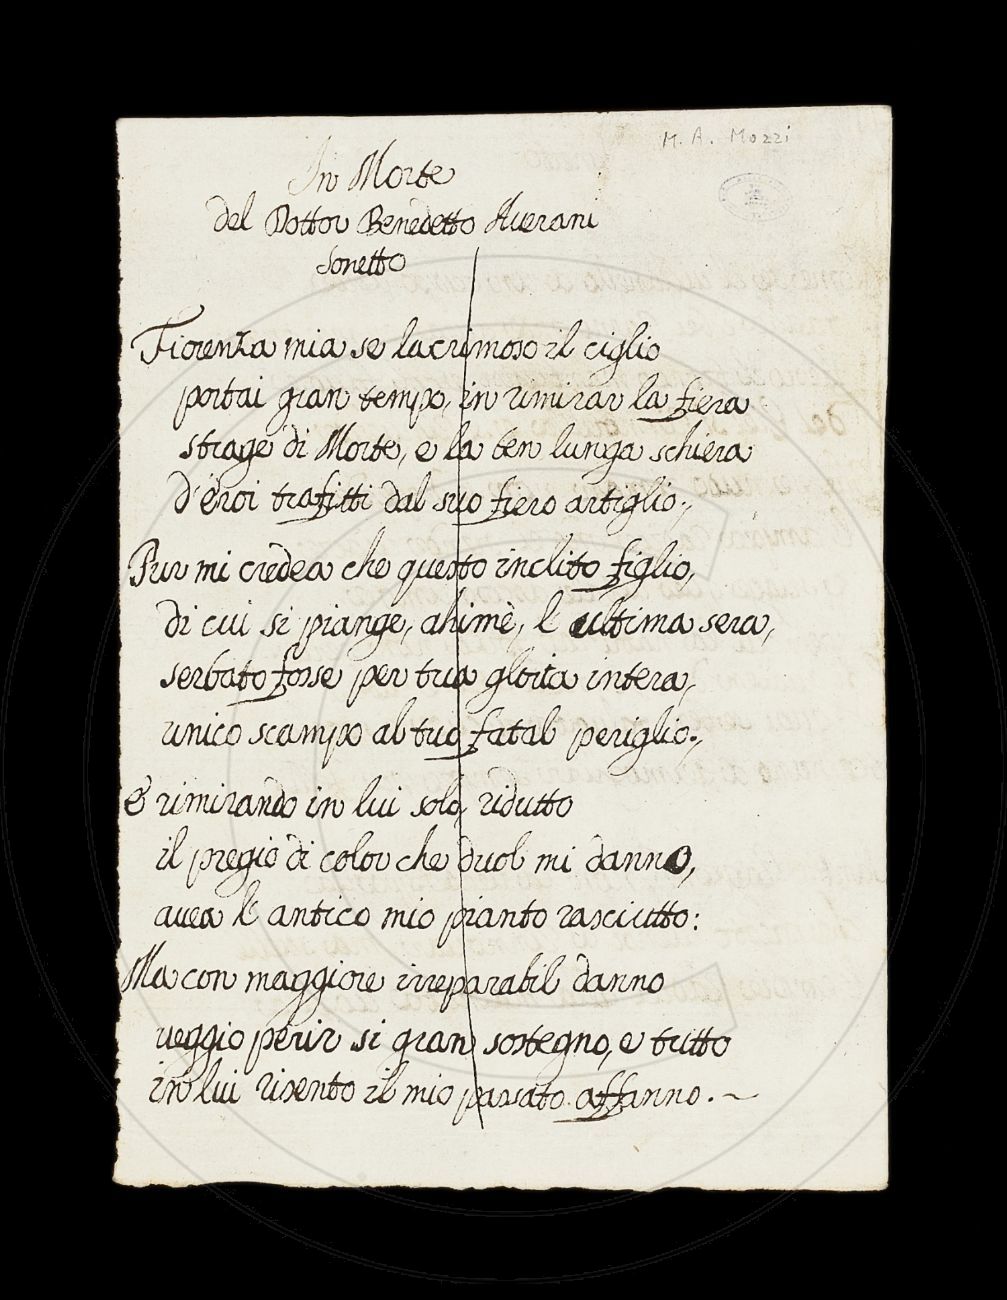 M. A. Mozzi
In Morte
del Dottor Benedetto Averani
Sonetto
Fiorenza mia se lacrimoso il ciglio
portai gran tempo, in rimirar la fiera
strage di Morte, e la ben lunga schiera
d'éroi trafitti dal suo fiero artiglio;
Pur mi credea che questo inclito figlio,
di cui si piange, ahimè, l ultima sera,
serbato forse per tua gloria intera,
unico scampo al tuo fatal periglio;
E rimirando in lui solo ridutto
il pregio di color che duol mi danno,
avea l' antico mio pianto rasciutto:
Ma con maggiore irreparabil danno
veggio perir si gran sostegno, e tutto
in lui risento il mio passato affanno. ~